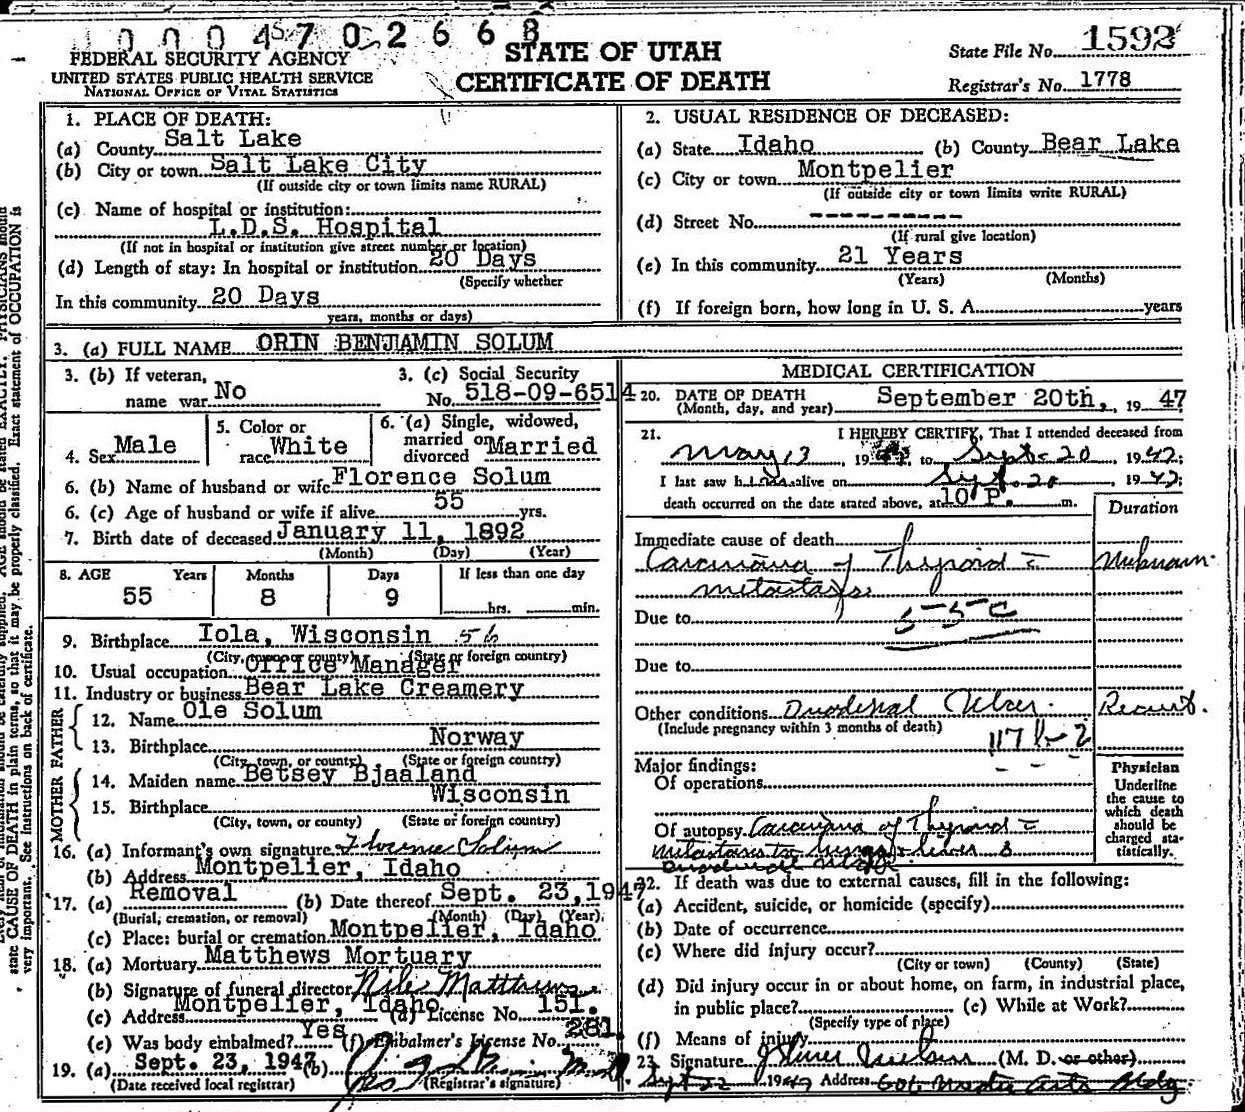 0004702668
FEDERAL SECURITY AGENCY
UNITED STATES PUBLIC HEALTH SERVICE
NATIONAL OFFICE OF VITAL STATISTICS
STATE OF UTAH
CERTIFICATE OF DEATH
State File No. 1592
Registrar's No. 1778
1. PLACE OF DEATH:
(a) County Salt Lake
(b) City or town Salt Lake City
(If outside city or town limits name RURAL)
(c) Name of hospital or institution:
L.D.S. Hospital
(If not in hospital or institution give street number or location)
(d) Length of stay: In hospital or institution 20 Days
(Specify whether
In this community 20 Days
years, months or days)
2. USUAL RESIDENCE OF DECEASED:
(a) State Idaho (b) County Bear Lake
(c) City or town Montpelier
(If outside city or town limits write RURAL)
(d) Street No. ----------
(If rural give location)
(e) In this community 21 Years
(Years) (Months)
(f) If foreign born, how long in U. S. A. years
3. (a) FULL NAME ORIN BENJAMIN SOLUM
3. (b) If veteran,
name war No
3. (c) Social Security
No. 518-09-6514
4. Sex Male
5. Color or
race White
6. (a) Single, widowed,
married or
divorced Married
6. (b) Name of husband or wife Florence Solum
6. (c) Age of husband or wife if alive 55 yrs.
7. Birth date of deceased January 11, 1892
(Month) (Day) (Year)
8. AGE Years Months Days If less than one day
55 8 9 hrs. min.
9. Birthplace Iola, Wisconsin 56
(City, town or county) (State or foreign country)
10. Usual occupation Office Manager
11. Industry or business Bear Lake Creamery
FATHER
12. Name Ole Solum
13. Birthplace Norway
(City, town, or county) (State or foreign country)
MOTHER
14. Maiden name Betsey Bjaaland
15. Birthplace Wisconsin
(City, town, or county) (State or foreign country)
16. (a) Informant's own signature Florence Solum
(b) Address Montpelier, Idaho
17. (a) Removal (b) Date thereof Sept. 23, 1947
(Burial, cremation, or removal) (Month) (Day) (Year)
(c) Place: burial or cremation Montpelier, Idaho
18. (a) Mortuary Matthews Mortuary
(b) Signature of funeral director Matthews
(c) Address Montpelier, Idaho (d) License No. 151.
(e) Was body embalmed? Yes (f) Embalmer's License No. 281.
19. (a) Sept. 23, 1947 (b)
(Date received local registrar) (Registrar's signature)
MEDICAL CERTIFICATION
20. DATE OF DEATH September 20th, 1947
(Month, day, and year)
21. I HEREBY CERTIFY, That I attended deceased from
May 13, 19 to Sept. 20, 1947;
I last saw h im alive on Sept. 20, 1947;
death occurred on the date stated above, at 10 P. m.
Duration
Immediate cause of death
Carcinoma of Thyroid c̄ Unknown.
metastasis
Due to 55C
Due to
Other conditions Duodenal Ulcer. Recent.
(Include pregnancy within 3 months of death) 117 b-2
Major findings:
Of operations
Of autopsy Carcinoma of Thyroid c̄
metastasis to lungs & liver &
Physician
Underline
the cause to
which death
should be
charged sta-
tistically.
22. If death was due to external causes, fill in the following:
(a) Accident, suicide, or homicide (specify)
(b) Date of occurrence
(c) Where did injury occur?
(City or town) (County) (State)
(d) Did injury occur in or about home, on farm, in industrial place,
in public place? (e) While at Work?
(Specify type of place)
(f) Means of injury
23. Signature (M. D. or other)
Sept 22 1947 Address Bldg.
state CAUSE OF DEATH in plain terms, so that it may be properly classified. Exact statement of OCCUPATION is
very important. See instructions on back of certificate.